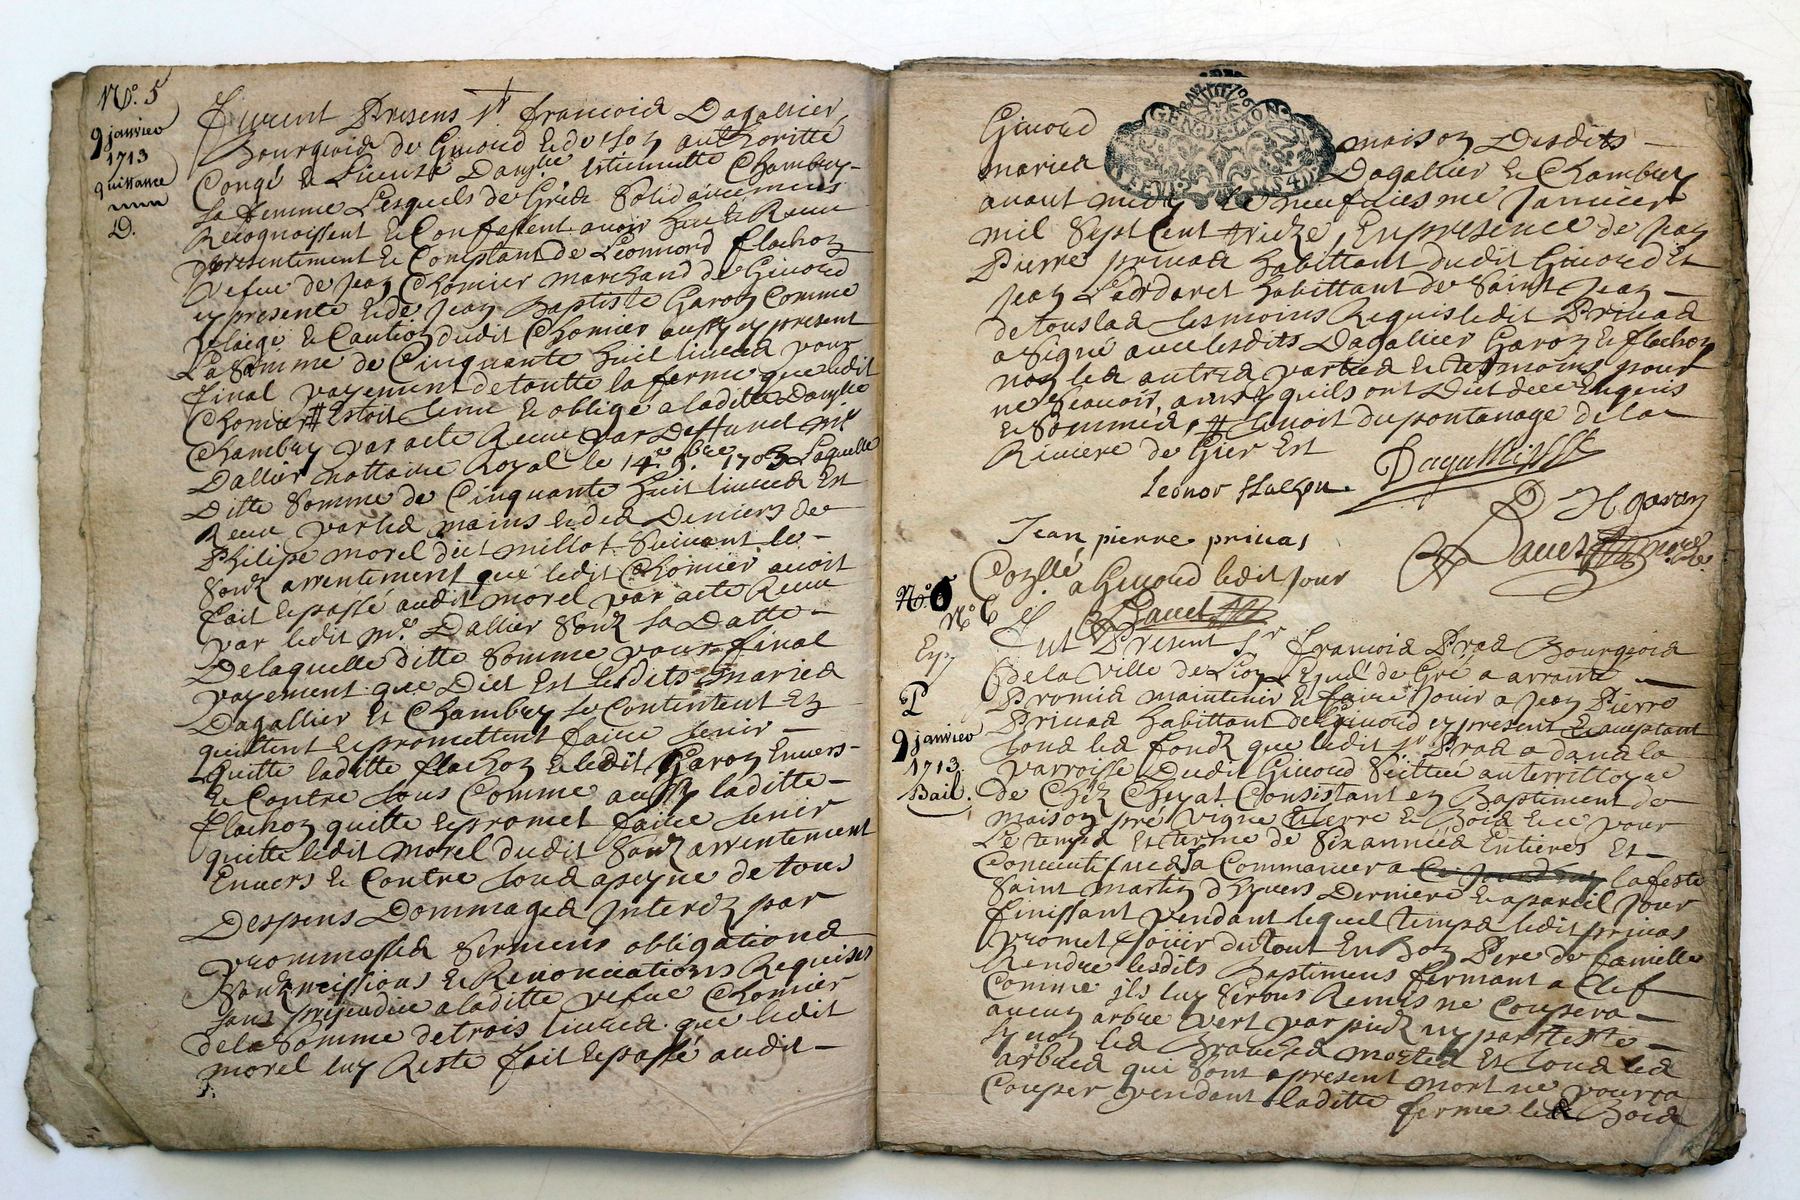 N.º 5
9 janvier
1713
quittance
D.
Furent Presens Sr francois Dagallier
Bourgeois de Givord & de son authoritté
Congé & Licensse Damlle Estiennette Chambry
sa femme Lesquels de Gréz Solidairement
Recognoissent & Confessent avoir heu & Receu
presentement & Comptant de Leonnord flachon
vefue de Jean Chomier marchand de Givord
cy presente & de Jean Baptiste Garon Comme
plaige & Caution dudit Chomier aussy cy present
La Somme de Cinquante huit livres pour
final payement de toutte la ferme que ledit
Chomier Estoit tenu & obligé a laditte Damlle
Chambry par acte Receu par Deffunct Me
Dallier nottaire Royal le 14e 1703 Laquelle
Ditte Somme de Cinquante huit livres Est
Receu par les mains & des Deniers de
Philipe morel dict millot Suivant le
Souz arrentement que ledit Chomier avoit
fait & passé audit morel par acte Receu
par ledit Me Dallier Souz Sa Datte
De laquelle ditte Somme pour final
payement que Dict Est lesdits mariez
Dagallier Et Chambry se Contentent En
quittent & promettent faire tenir
quitte laditte flachon & ledit Garon Envers
& Contre tous Comme aussy laditte
flachon quitte & promet faire tenir
quitte ledit morel dudit Souz arrentement
Envers & Contre tous a peyne de tous
Despens Dommages Interez par
promesses Sermens obligations
Soubzmissions & Renonciations Requises
sans prejudice a laditte vefue Chomier
de la Somme de trois livres que ledit
morel luy Reste fait & passé audit
Givord maison Desdits
mariez Dagallier & Chambry
GEN·DE·LION
avant midy le neufviesme Janvier
mil Sept Cent treize, En presence de Jean
Pierre privas habittant dudit Givord Et
Jean habittant de Saint Jean
de touslas tesmoins Requis ledit Privas
a Signé avec lesdits Dagallier Garon & flachon
non les autres parties & tesmoins pour
ne Scavoir, ainsy quils ont Dict de ce Enquis
& Sommés, # du pontanage de la
Riviere de Gier Est
Dagallier
Leonor flachon
H garon
Jean pierre privas
Conllé a Givord ledit jour
N.º 6
N.º 6
9 janvier
1713
Bail.
Fut Present Sr francois Pras Bourgeois
de la ville de Lion Lequel de Gré a arranté
Promis maintenir & faire Jouir a Jean Pierre
Privas habittant de Givord cy present & acceptant
tous les fondz que ledit Sr Pras a dans la
parroisse Dudit Givord Scittué au territtoyre
de Chez Chepat Consistant en Bastiment de
maison pré vigne & terre & Bois & ce pour
Le temps Et terme de Six années Entieres Et
Consecutives a Commancer a la feste
Saint martin d'hyvers Derniere & a pareil Jour
finissant pendant lequel temps ledit privas
promet Jouir du tout En Bon Pere de famille
Rendre lesdits Bastimens fermant a Clef
Comme ils luy Seront Remis ne Coupera
aucun arbre vert par pied ny par teste
Synon les Branches mortes Et tous les
arbres qui Sont a present mort ne pourra
Couper pendant laditte ferme les Bois